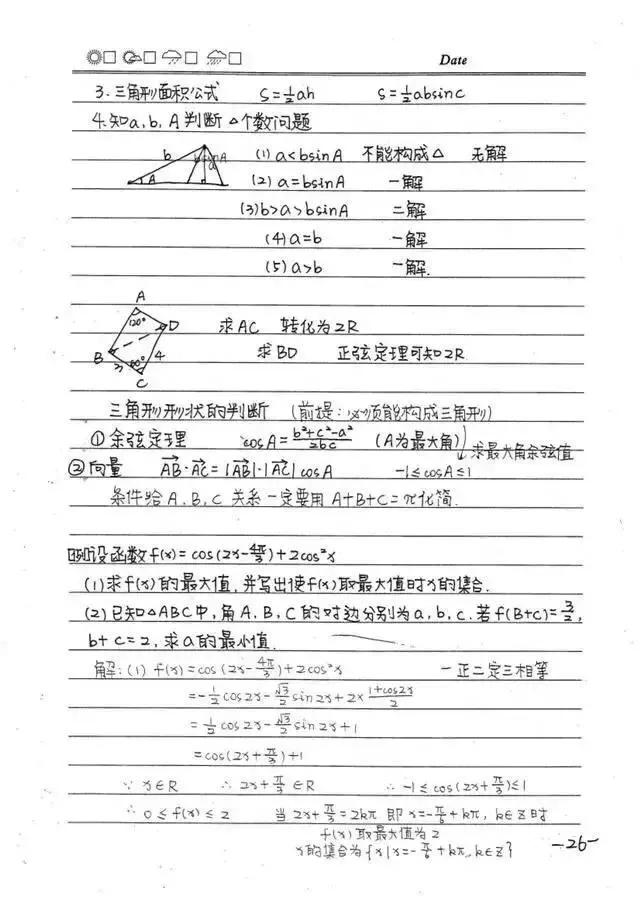 Date
3.三角形面积公式 S=½ah S=½absinC
4.知a,b,A判断△个数问题
b A a
(1) a<bsinA 不能构成△ 无解
(2) a=bsinA 一解
(3) b>a>bsinA 二解
(4) a=b 一解
(5) a>b 一解.
A 120° D B 3 60° 4 C
求AC 转化为2R
求BD 正弦定理可知2R
三角形形状的判断 (前提:必须能构成三角形)
①余弦定理 cosA=(b²+c²-a²)/2bc (A为最大角) 求最大角余弦值
②向量 AB·AC=|AB|·|AC|cosA -1≤cosA≤1
条件给A,B,C关系一定要用A+B+C=π化简.
例设函数f(x)=cos(2x-4π/3)+2cos²x
(1)求f(x)的最大值,并写出使f(x)取最大值时x的集合.
(2)已知△ABC中,角A,B,C的对边分别为a,b,c.若f(B+C)=3/2,
b+c=2,求a的最小值.
解:(1) f(x)=cos(2x-4π/3)+2cos²x 一正二定三相等
=-½cos2x-√3/2 sin2x+2×(1+cos2x)/2
=½cos2x-√3/2 sin2x+1
=cos(2x+π/3)+1
∵ x∈R ∴ 2x+π/3∈R ∴ -1≤cos(2x+π/3)≤1
∴ 0≤f(x)≤2 当2x+π/3=2kπ 即x=-π/6+kπ,k∈Z时
f(x)取最大值为2
x的集合为{x|x=-π/6+kπ,k∈Z}
-26-